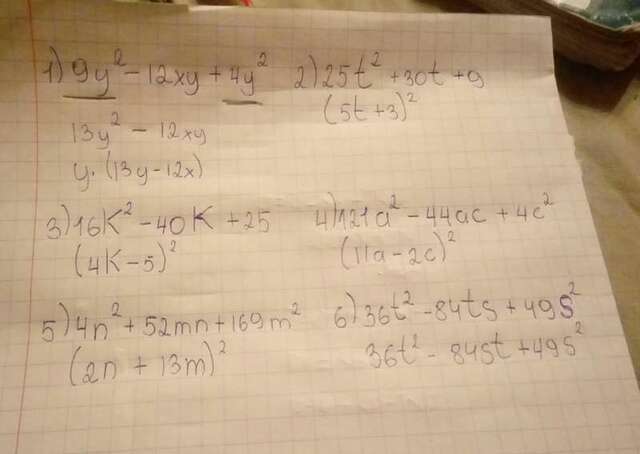 1) 9y² - 12xy + 4y²
13y² - 12xy
y · (13y - 12x)
2) 25t² + 30t + 9
(5t + 3)²
3) 16K² - 40K + 25
(4K - 5)²
4) 121a² - 44ac + 4c²
(11a - 2c)²
5) 4n² + 52mn + 169m²
(2n + 13m)²
6) 36t² - 84ts + 49s²
36t² - 84st + 49s²